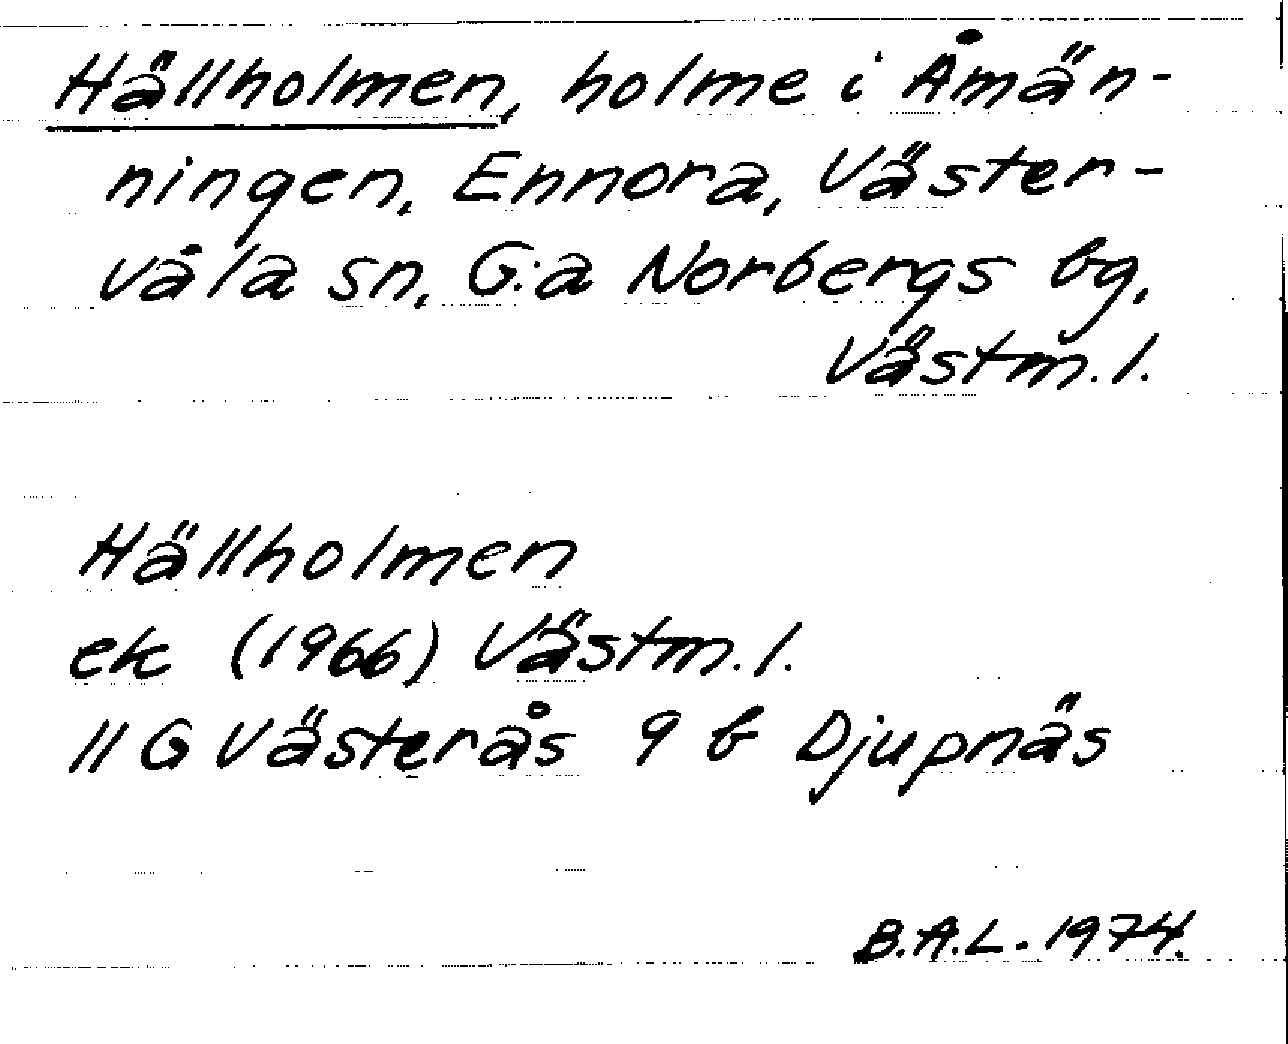 Hällholmen, holme i Åmän-
ningen, Ennora, Väster-
våla sn, G:a Norbergs bg,
Västm. l.
Hällholmen
ek (1966) Västm. l.
11 G Västerås 9 b Djupnäs
B.A.L. 1974.